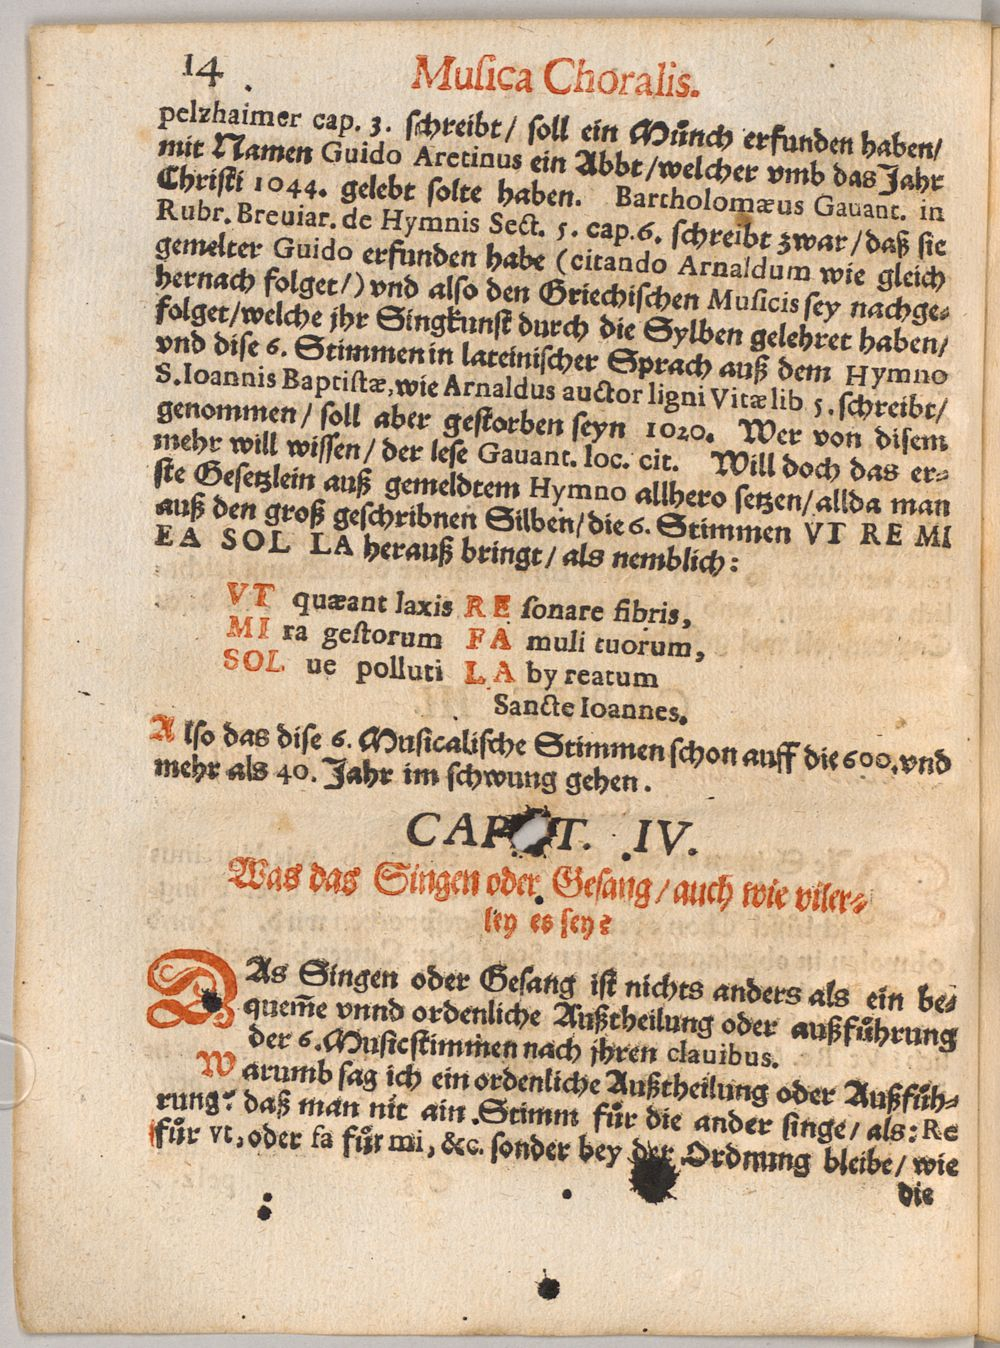 14 Muſica Choralis.
pelzhaimer cap. 3. ſchreibt/ ſoll ein Mů̈nch erfunden haben/
mit Namen Guido Aretinus ein Abbt/welcher vmb das Jahr
Chriſti 1044. gelebt ſolte haben. Bartholomæus Gauant. in
Rubr. Breuiar. de Hymnis Sect. 5. cap. 6. ſchreibt zwar/daß ſie
gemelter Guido erfunden habe (citando Arnaldum wie gleich
hernach folget/) vnd alſo den Griechiſchen Muſicis ſey nachge⸗
folget/welche jhr Singkunſt durch die Sylben gelehret haben/
vnd diſe 6. Stimmen in lateiniſcher Sprach auß dem Hymno
S. Ioannis Baptiſtæ, wie Arnaldus auctor ligni Vitæ lib 5. ſchreibt/
genommen/ ſoll aber geſtorben ſeyn 1020. Wer von diſem
mehr will wiſſen/ der leſe Gauant. loc. cit. Will doch das er⸗
ſte Geſetzlein auß gemeldtem Hymno allhero ſetzen/allda man
auß den groß geſchribnen Silben/die 6. Stimmen VT RE MI
EA SOL LA herauß bringt/ als nemblich:
VT quæant laxis RE ſonare fibris,
MI ra geſtorum FA muli tuorum,
SOL ue polluti LA by reatum
Sancte Ioannes.
Alſo das diſe 6. Muſicaliſche Stimmen ſchon auff die 600. vnd
mehr als 40. Jahr im ſchwung gehen.
CAP T. IV.
Was das Singen oder Geſang/auch wie viler⸗
ley es ſey?
DAs Singen oder Geſang iſt nichts anders als ein be⸗
quem̄e vnnd ordenliche Außtheilung oder außfuͤhrung
der 6. Muſicſtimm̄en nach jhren clauibus.
Warumb ſag ich ein ordenliche Außtheilung oder Außfuͤh⸗
rung? daß man nit ain Stimm fuͤr die ander ſinge/ als: Re
fuͤr vt, oder fa fuͤr mi, &c. ſonder bey der Ordnung bleibe/ wie
die